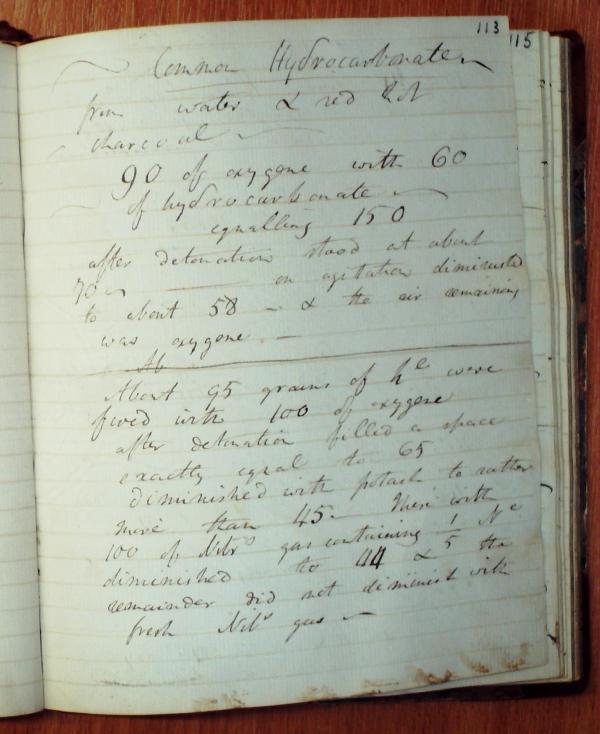 113
115
Common Hydrocarbonate
from water & red hot
charcoal
90 of oxygene with 60
of hydrocarbonate
equalling 150
after detonation stood at about
70 — on agitation diminished
to about 58 — & the air remaining
was oxygene —
Ab
About 95 grains of h e were
fired with 100 of oxygene
after detonation filled a space
exactly equal to 65
diminished with potash to rather
more than 45. These with
100 of Nitrs gas containing 1 Ne
diminished to 44 & 5 the
remainder did not diminish with
fresh Nits gas —